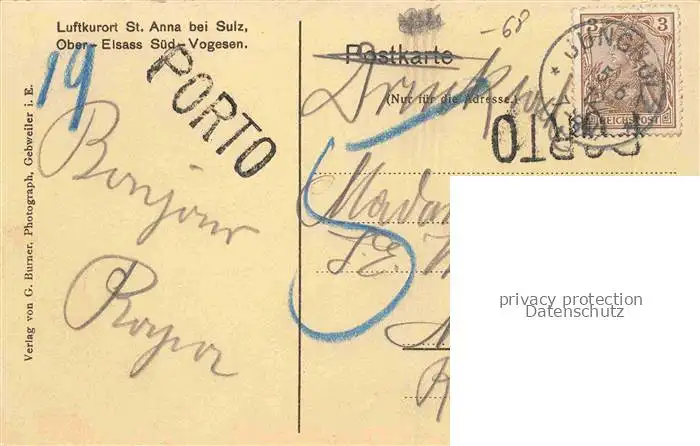 Luftkurort St. Anna bei Sulz,
Ober-Elsass Süd-Vogesen.
19
PORTO
Bonjour
Verlag von G. Burner, Photograph, Gebweiler i. E.
-68
Postkarte
(Nur für die Adresse.)
3 3
REICHSPOST
PORTO
5
privacy protection
Datenschutz